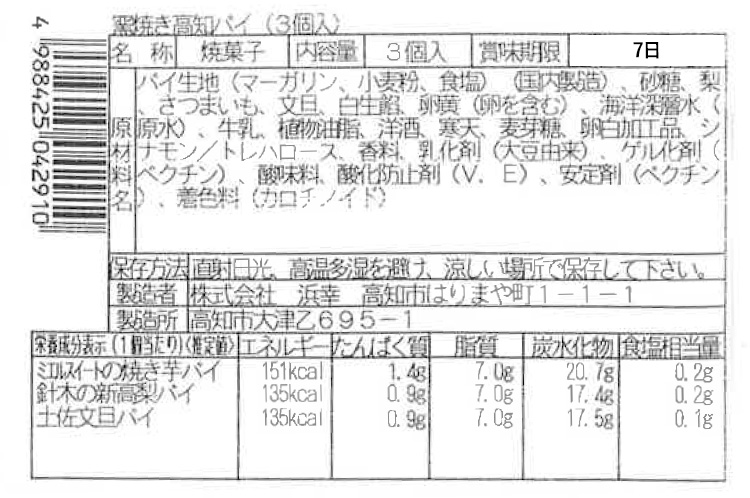 窯焼き高知パイ(3個入)
名 称 焼菓子 内容量 3個入 賞味期限 7日
原材料名
パイ生地(マーガリン、小麦粉、食塩)(国内製造)、砂糖、梨
、さつまいも、文旦、白生餡、卵黄(卵を含む)、海洋深層水(
原水)、牛乳、植物油脂、洋酒、寒天、麦芽糖、卵白加工品、シ
ナモン/トレハロース、香料、乳化剤(大豆由来)、ゲル化剤(
ペクチン)、酸味料、酸化防止剤(V.E)、安定剤(ペクチン
)、着色料(カロチノイド)
保存方法 直射日光、高温多湿を避け、涼しい場所で保存して下さい。
製造者 株式会社 浜幸 高知市はりまや町1-1-1
製造所 高知市大津乙695-1
栄養成分表示(1個当たり)(推定値) エネルギー たんぱく質 脂質 炭水化物 食塩相当量
ミエルスイートの焼き芋パイ 151kcal 1.4g 7.0g 20.7g 0.2g
針木の新高梨パイ 135kcal 0.9g 7.0g 17.4g 0.2g
土佐文旦パイ 135kcal 0.9g 7.0g 17.5g 0.1g
4 988425 042910